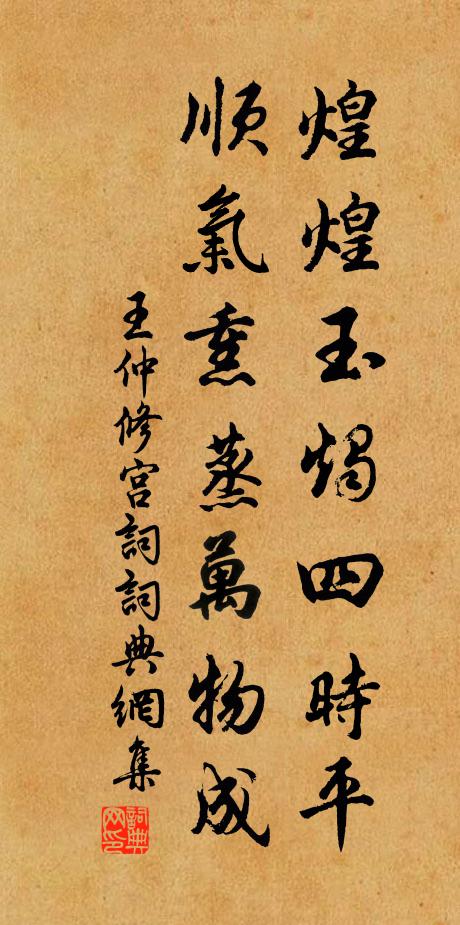 煌煌玉燭四時平
順氣熏蒸萬物成
王仲修宮詞詞典網集
詞典網印